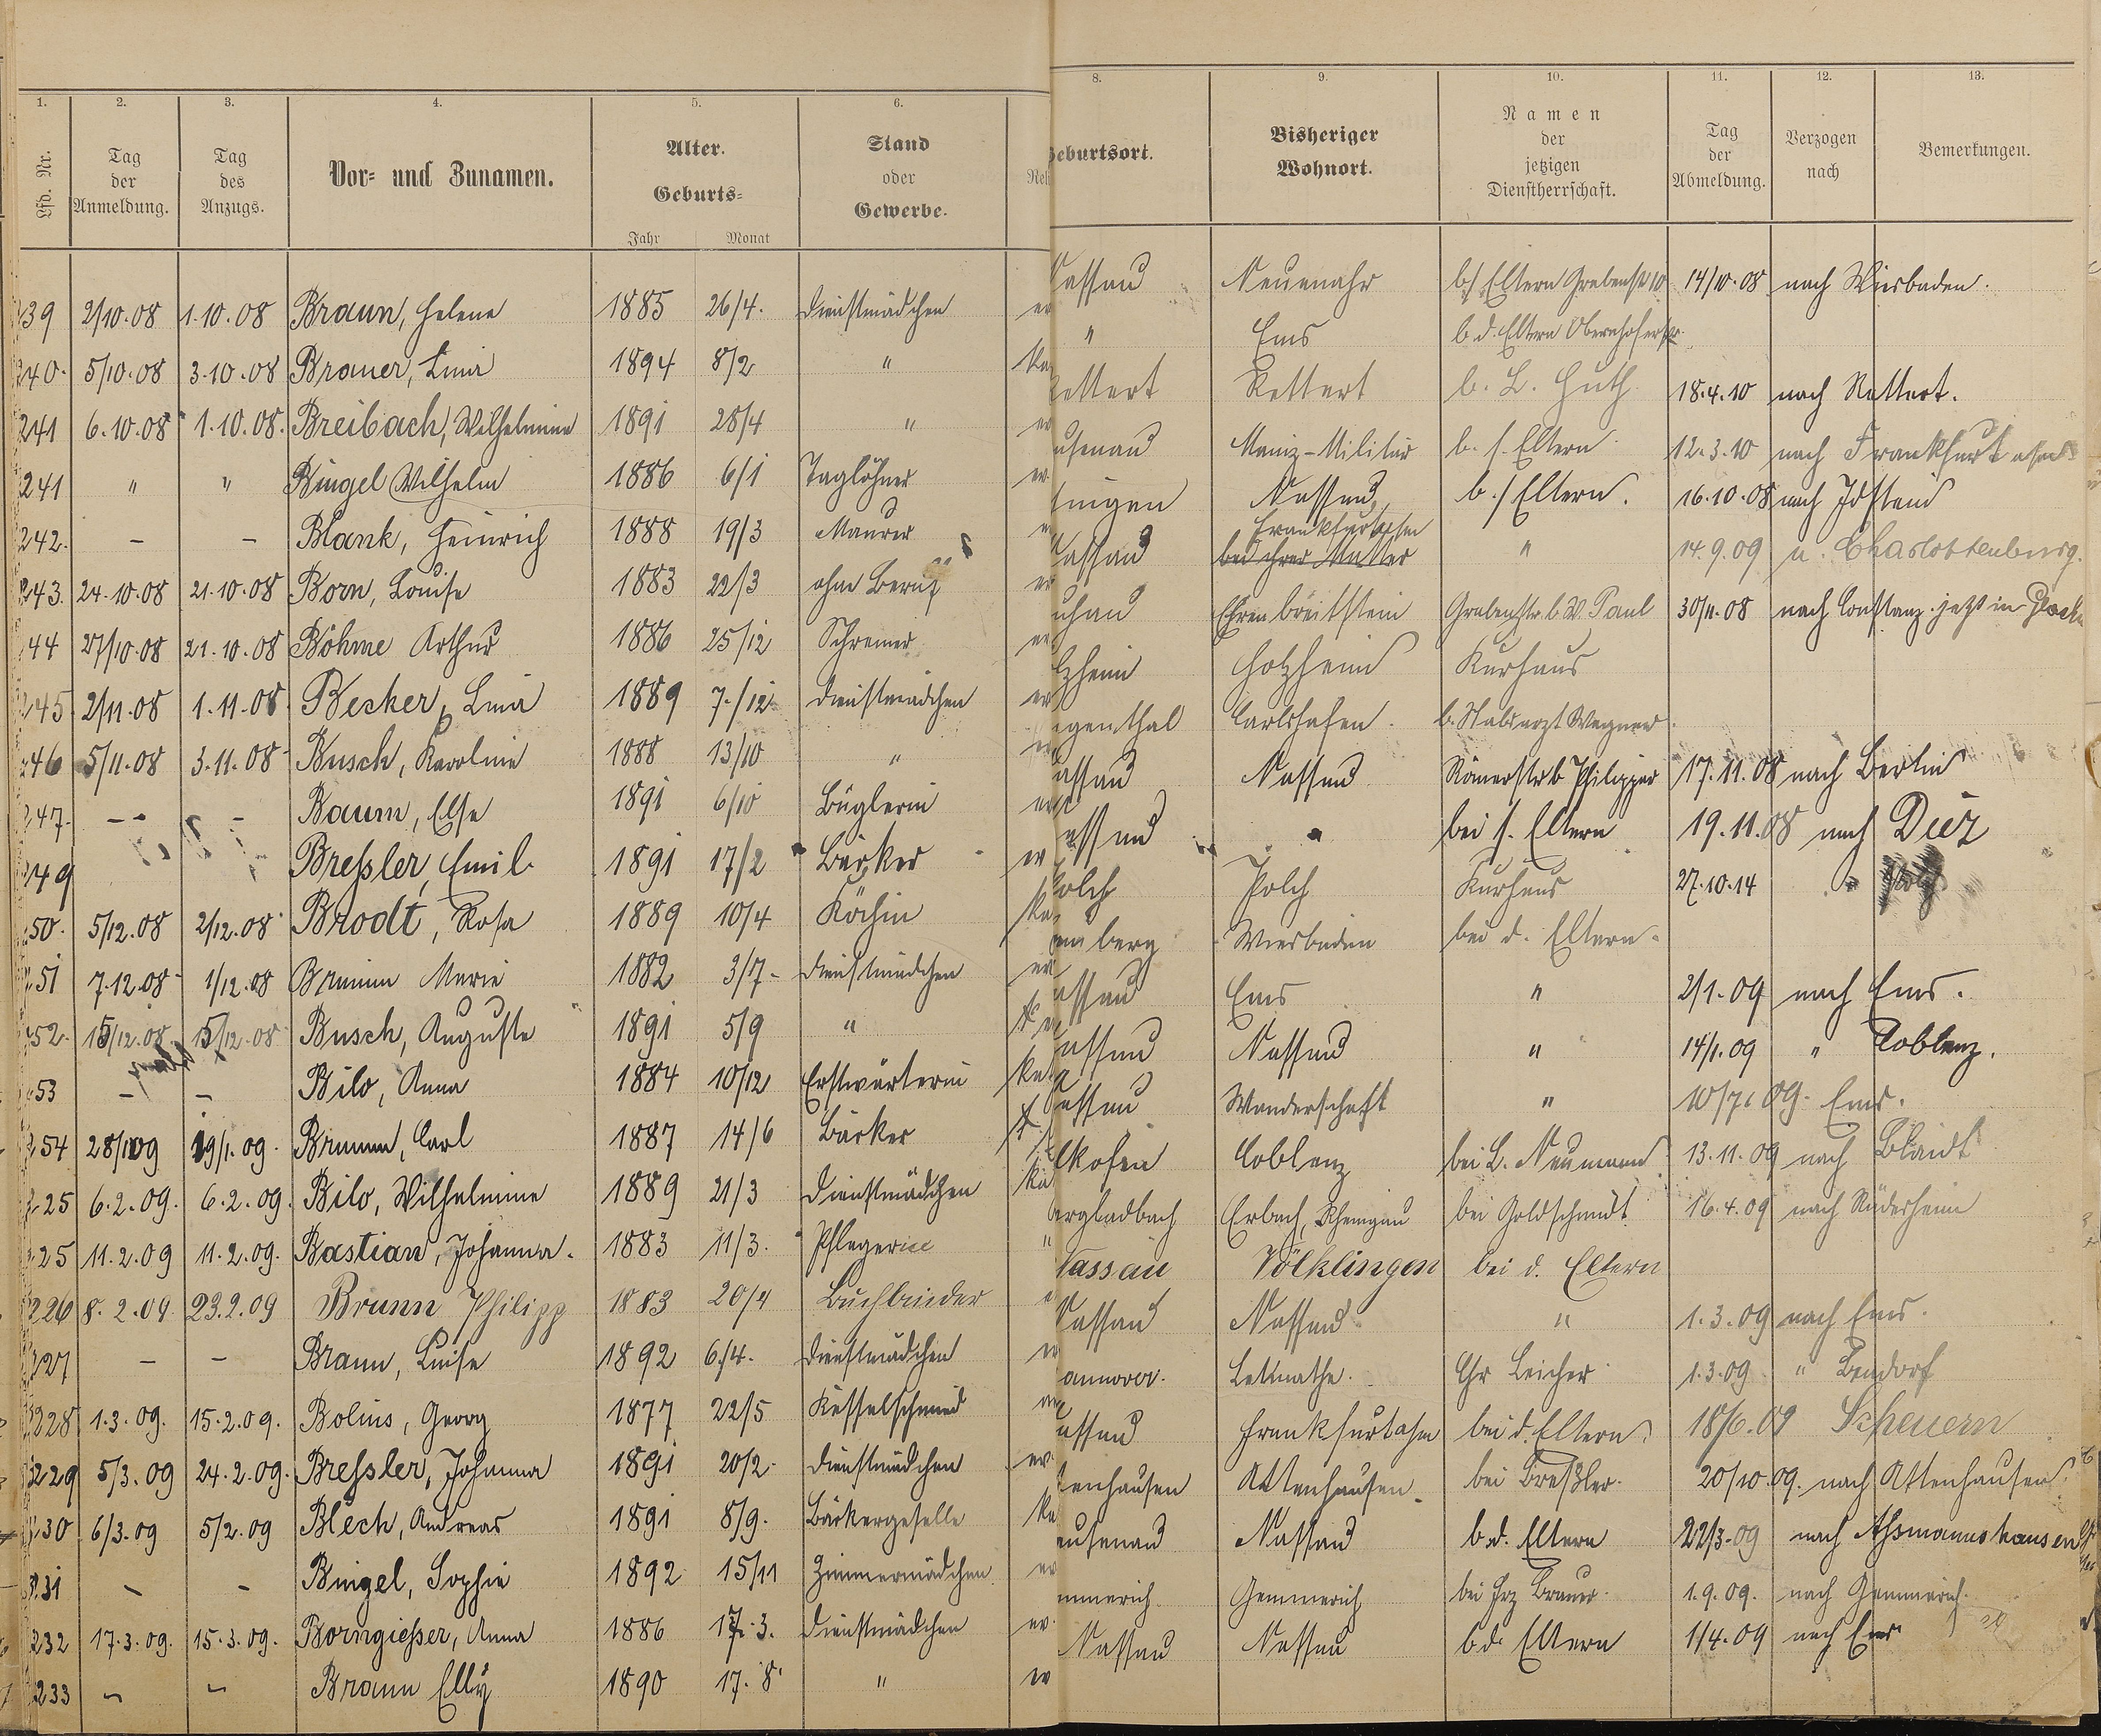 1. 2. 3. 4. 5. 6. 8. 9. 10. 11. 12. 13.
Lfd. Nr. Tag der Anmeldung. Tag des Anzugs. Vor- und Zunamen. Alter. Geburts- Jahr Monat Stand oder Gewerbe. Rel Geburtsort. Bisheriger Wohnort. Namen der jetzigen Dienstherrschaft. Tag der Abmeldung. Verzogen nach Bemerkungen.
239 2/10.08 1.10.08 Braun, Helene 1885 26/4. Dienstmädchen ev Nassau Neuenahr b/ Eltern Grabenstr 10 14/10.08 nach Wiesbaden.
240. 5/10.08 3.10.08 Brauer, Lina 1894 8/2 " ka " Ems b.d. Eltern Obernhoferstr.
241 6.10.08 1.10.08. Breibach, Wilhelmine 1891 28/4 " ev Rettert Rettert b. L. Huth 18.4.10 nach Rettert.
241 " " Bingel Wilhelm 1886 6/1 Taglöhner ev usenau Mainz-Militär b. s. Eltern 12.3.10 nach Frankfurt
242. – – Blank, Heinrich 1888 19/3 Maurer ingen Nassau, b./Eltern. 16.10.08 nach Idstein
243. 24.10.08 21.10.08 Born, Louise 1883 22/3 ohne Beruf ev Nassau Frankfurt bei ihrer Mutter " 14.9.09 n. Charlottenburg.
44 27/10.08 21.10.08 Böhme Arthur 1886 25/12 Schreiner ev uhau Ehrenbreitstein Grabenstr. b W. Paul 30/11.08 nach Constanz. jetzt in
245. 2/11.08 1.11.08 Becker, Lina 1889 7./12 Dienstmädchen ev lzheim Holzheim Kurhaus
246 5/11.08 3.11.08 Busch, Karoline 1888 13/10 " ev genthal Carlshafen. b. Stabsarzt Wegner
247. – – Baum, Else 1891 6/10 Büglerin ev assau Nassau Römerstr b Philippar 17.11.08 nach Berlin
249 Bressler, Emil 1891 17/2 Bäcker ev assau " bei s. Eltern 19.11.08 nach Diez
50. 5/12.08 2/12.08 Brodt, Rosa 1889 10/4 Köchin ka Polch Polch Kurhaus 27.10.14 "
51 7.12.08 1/12.08 Brumm Marie 1882 3/7- Dienstmädchen ev berg Wiesbaden bei d. Eltern.
52. 15/12.08 15/12.08 Busch, Auguste 1891 5/9 " ev assau Ems " 2/1.09 nach Ems.
53 – – Bilo, Anna 1884 10/12 ka assau Nassau " 14/1.09 " Coblenz.
254 28/1 09 19/1.09. Brumm, Carl 1887 14/6 Bäcker assau Wanderschaft " 10/7.09. Ems.
25 6.2.09. 6.2.09. Bilo, Wilhelmine 1889 21/3 Dienstmädchen ka lkofen Coblenz bei L. Neumann 13.11.09 nach Plaidt
25 11.2.09 11.2.09. Bastian, Johanna. 1883 11/3. Pflegerin " ergladbach Erbach, Rheingau bei Goldschmidt 16.4.09 nach Rüdesheim
226 8.2.09. 23.2.09 Brunn Philipp 1883 20/4 Buchbinder e Nassau Völklingen bei d. Eltern
227 – – Braun, Luise 1892 6./4. Dienstmädchen ev Nassau Nassau " 1.3.09 nach Ems.
228 1.3.09. 15.2.09. Bolius, Georg 1877 22/5 Kesselschmied ev annover. Letmathe. Chr Leicher 1.3.09 " Bendorf
229 5/3.09 24.2.09. Bressler, Johanna 1891 20/2. Dienstmädchen ev. assau Frankfurt bei d. Eltern 18/6.09 Scheuern
230 6/3.09 5/2.09 Blech, Andreas 1891 8/9. Bäckergeselle ka enhausen Attenhausen. bei Breßler. 20/10.09. nach Attenhausen
231 – – Bingel, Sophie 1892 15/11 Zimmermädchen ev usenau Nassau b.d. Eltern 22/3.09 nach Assmannshausen
232 17.3.09. 15.3.09. Borngiesser, Anna 1886 17.3. Dienstmädchen ev. mmerich Gemmerich bei Hrz Brauer. 1.9.09. nach Gemmerich.
233 – – Braun Elly 1890 17.8. " ev Nassau Nassau b.d. Eltern 1/4.09 nach Ems